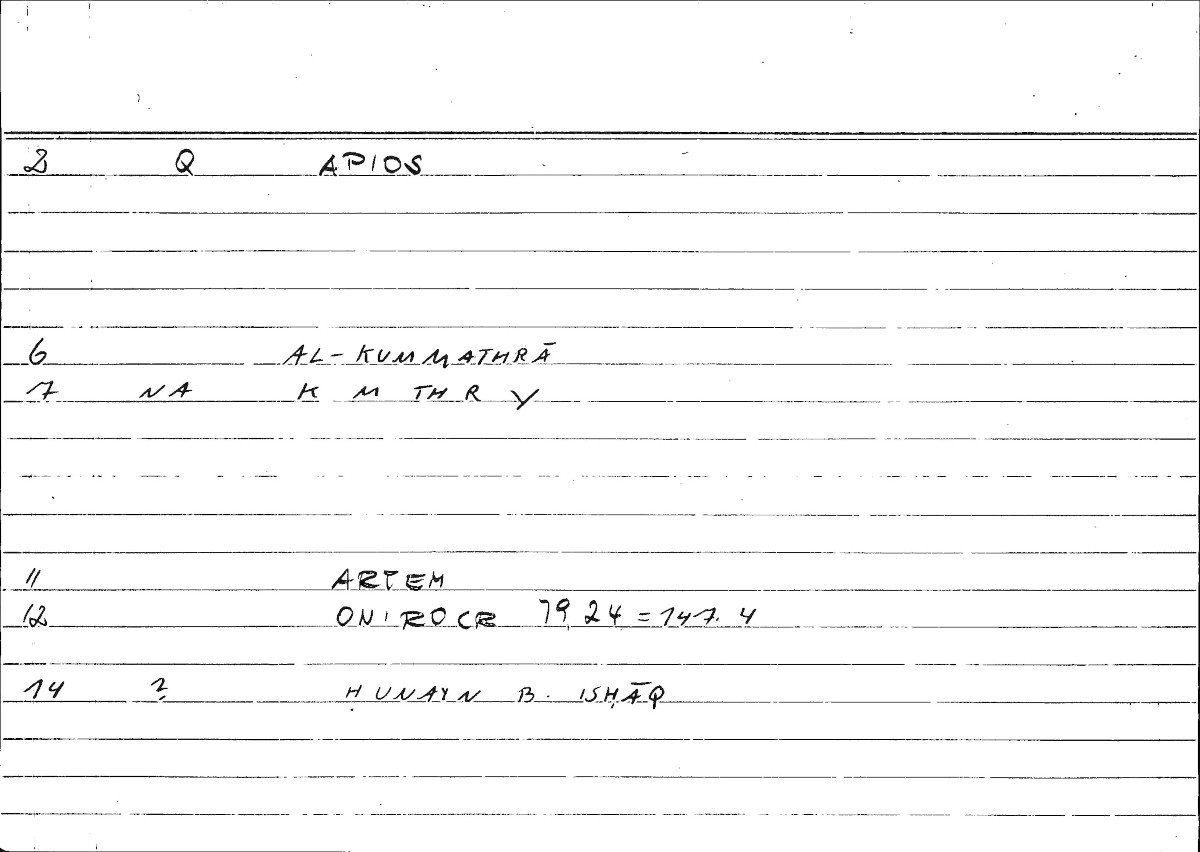 2 Q APIOS
6 AL-KUMMATHRĀ
7 NA K M TH R Y
11 ARTEM
12 ONIROCR 79,24 = 147.4
14 ? ḤUNAYN B. ISḤĀQ